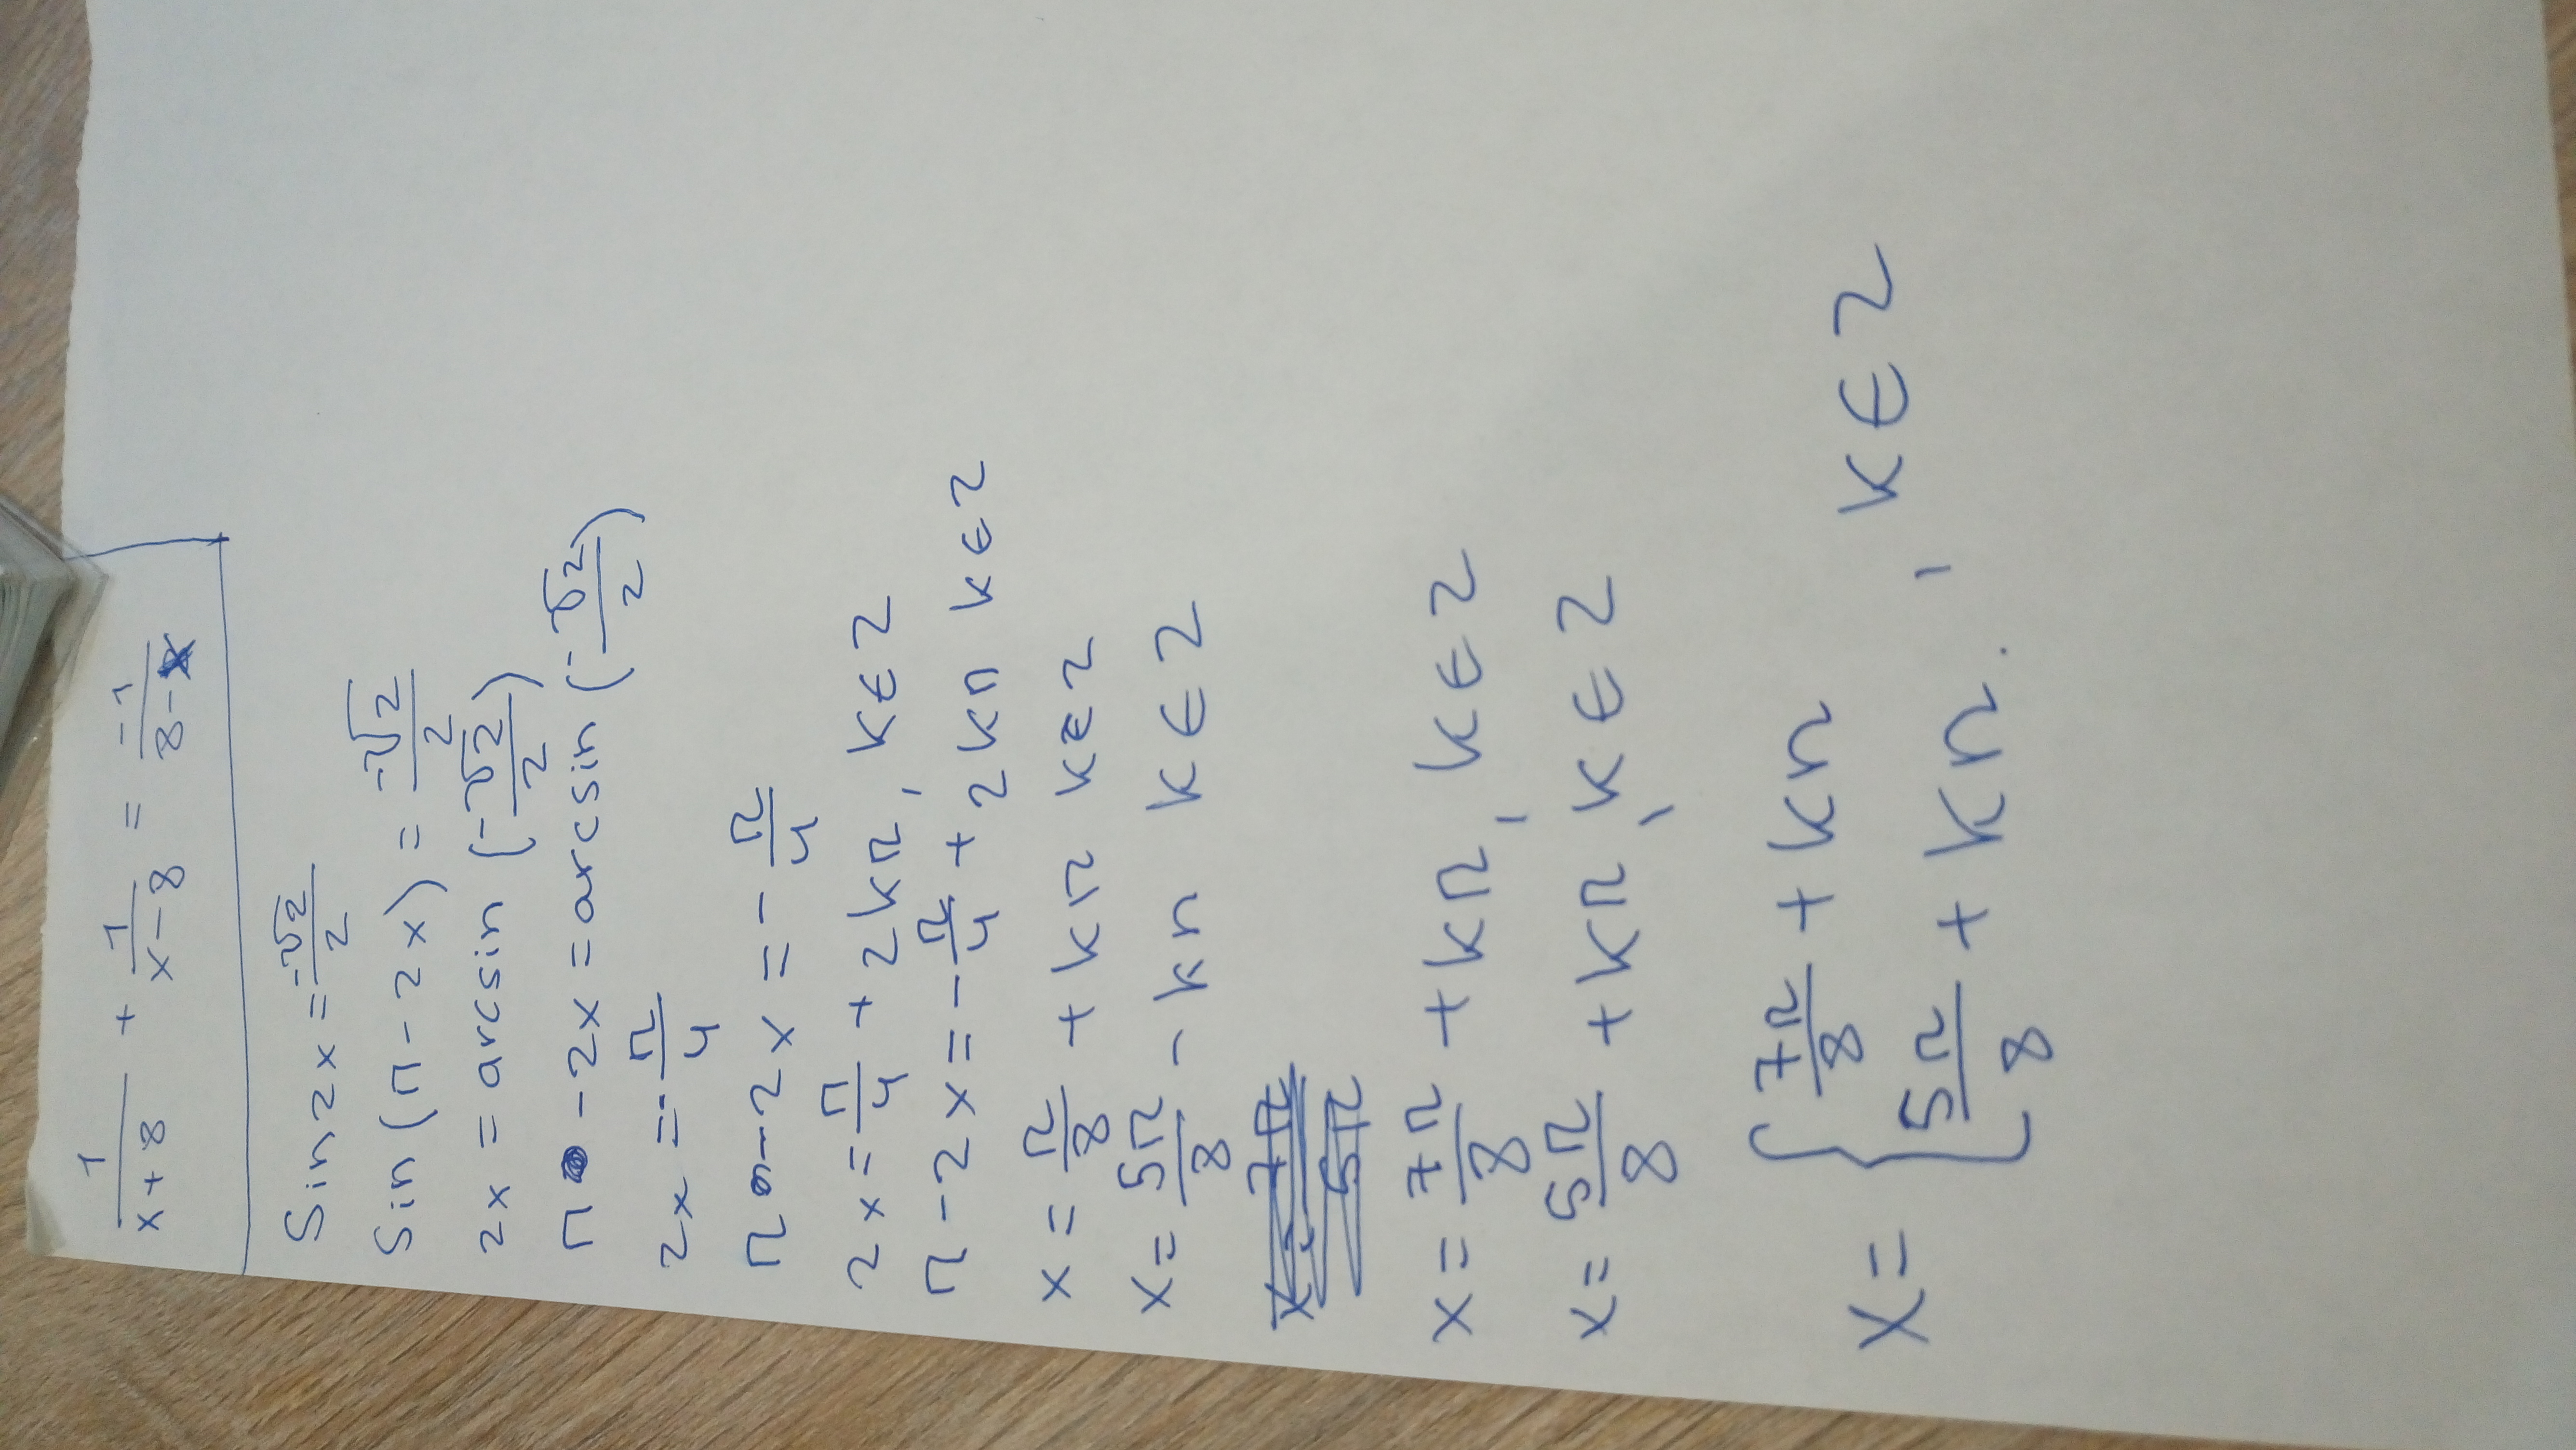 1/(x+8) + 1/(x-8) = -1/(8-x)
Sin2x = -√2/2
Sin(π-2x) = -√2/2
2x = arcsin(-√2/2)
π-2x = arcsin(-√2/2)
2x = -π/4
π-2x = -π/4
2x = π/4 + 2kπ, k∈Z
π-2x = -π/4 + 2kπ k∈Z
x = π/8 + kπ k∈Z
x = 5π/8 - kπ k∈Z
x = 7π/8 + kπ, k∈Z
x = 5π/8 + kπ, k∈Z
x = { 7π/8 + kπ
5π/8 + kπ. , k∈Z